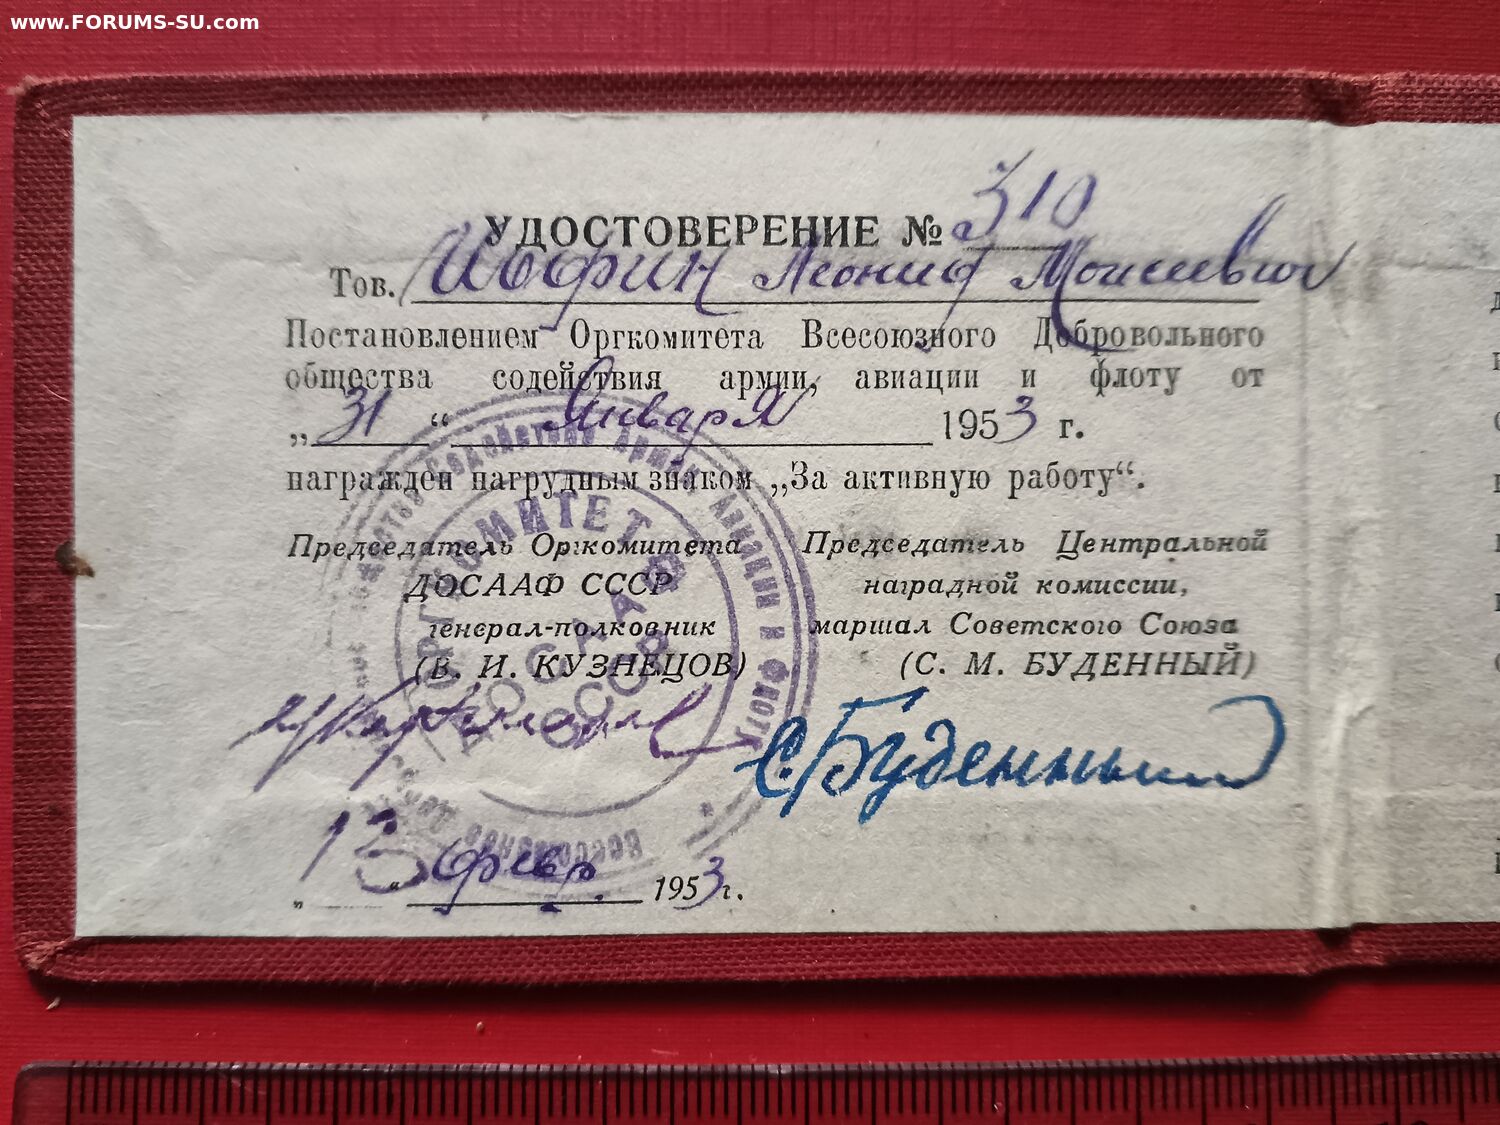 www.FORUMS-SU.com
УДОСТОВЕРЕНИЕ № 310
Тов. Иоффин Леонид Моисеевич
Постановлением Оргкомитета Всесоюзного Добровольного
общества содействия армии, авиации и флоту от
„31“ Января 1953 г.
награжден нагрудным знаком „За активную работу“.
Председатель Оргкомитета
ДОСААФ СССР
генерал-полковник
(В. И. КУЗНЕЦОВ)
Председатель Центральной
наградной комиссии,
маршал Советского Союза
(С. М. БУДЕННЫЙ)
С. Буденный
ОРГКОМИТЕТ
ДОСААФ
СССР
„13“ февр. 1953 г.